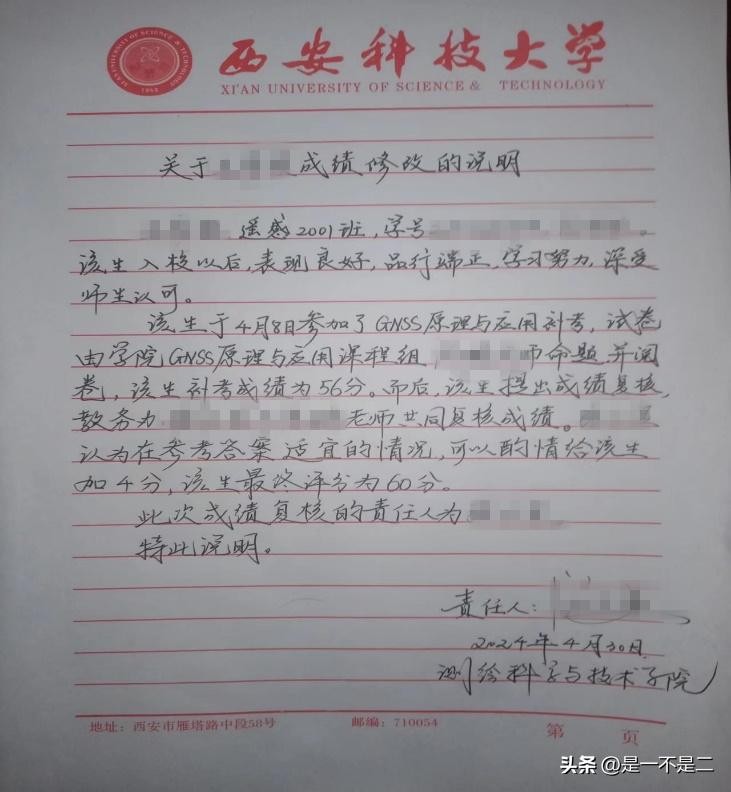 XI'AN UNIVERSITY OF SCIENCE & TECHNOLOGY
1958
西安科技大学
XI'AN UNIVERSITY OF SCIENCE & TECHNOLOGY
关于 成绩修改的说明
遥感2001班,学号 。
该生入校以后,表现良好,品行端正,学习努力,深受
师生认可。
该生于4月8日参加了GNSS原理与应用补考,试卷
由学院GNSS原理与应用课程组 师命题并阅
卷,该生补考成绩为56分。而后,该生提出成绩复核,
教务为 老师共同复核成绩。
认为在参考答案适宜的情况,可以酌情给该生
加4分,该生最终评分为60分。
此次成绩复核的责任人为
特此说明。
责任人:
2024年4月30日
测绘科学与技术学院
地址:西安市雁塔路中段58号 邮编:710054 第 页
头条 @是一不是二